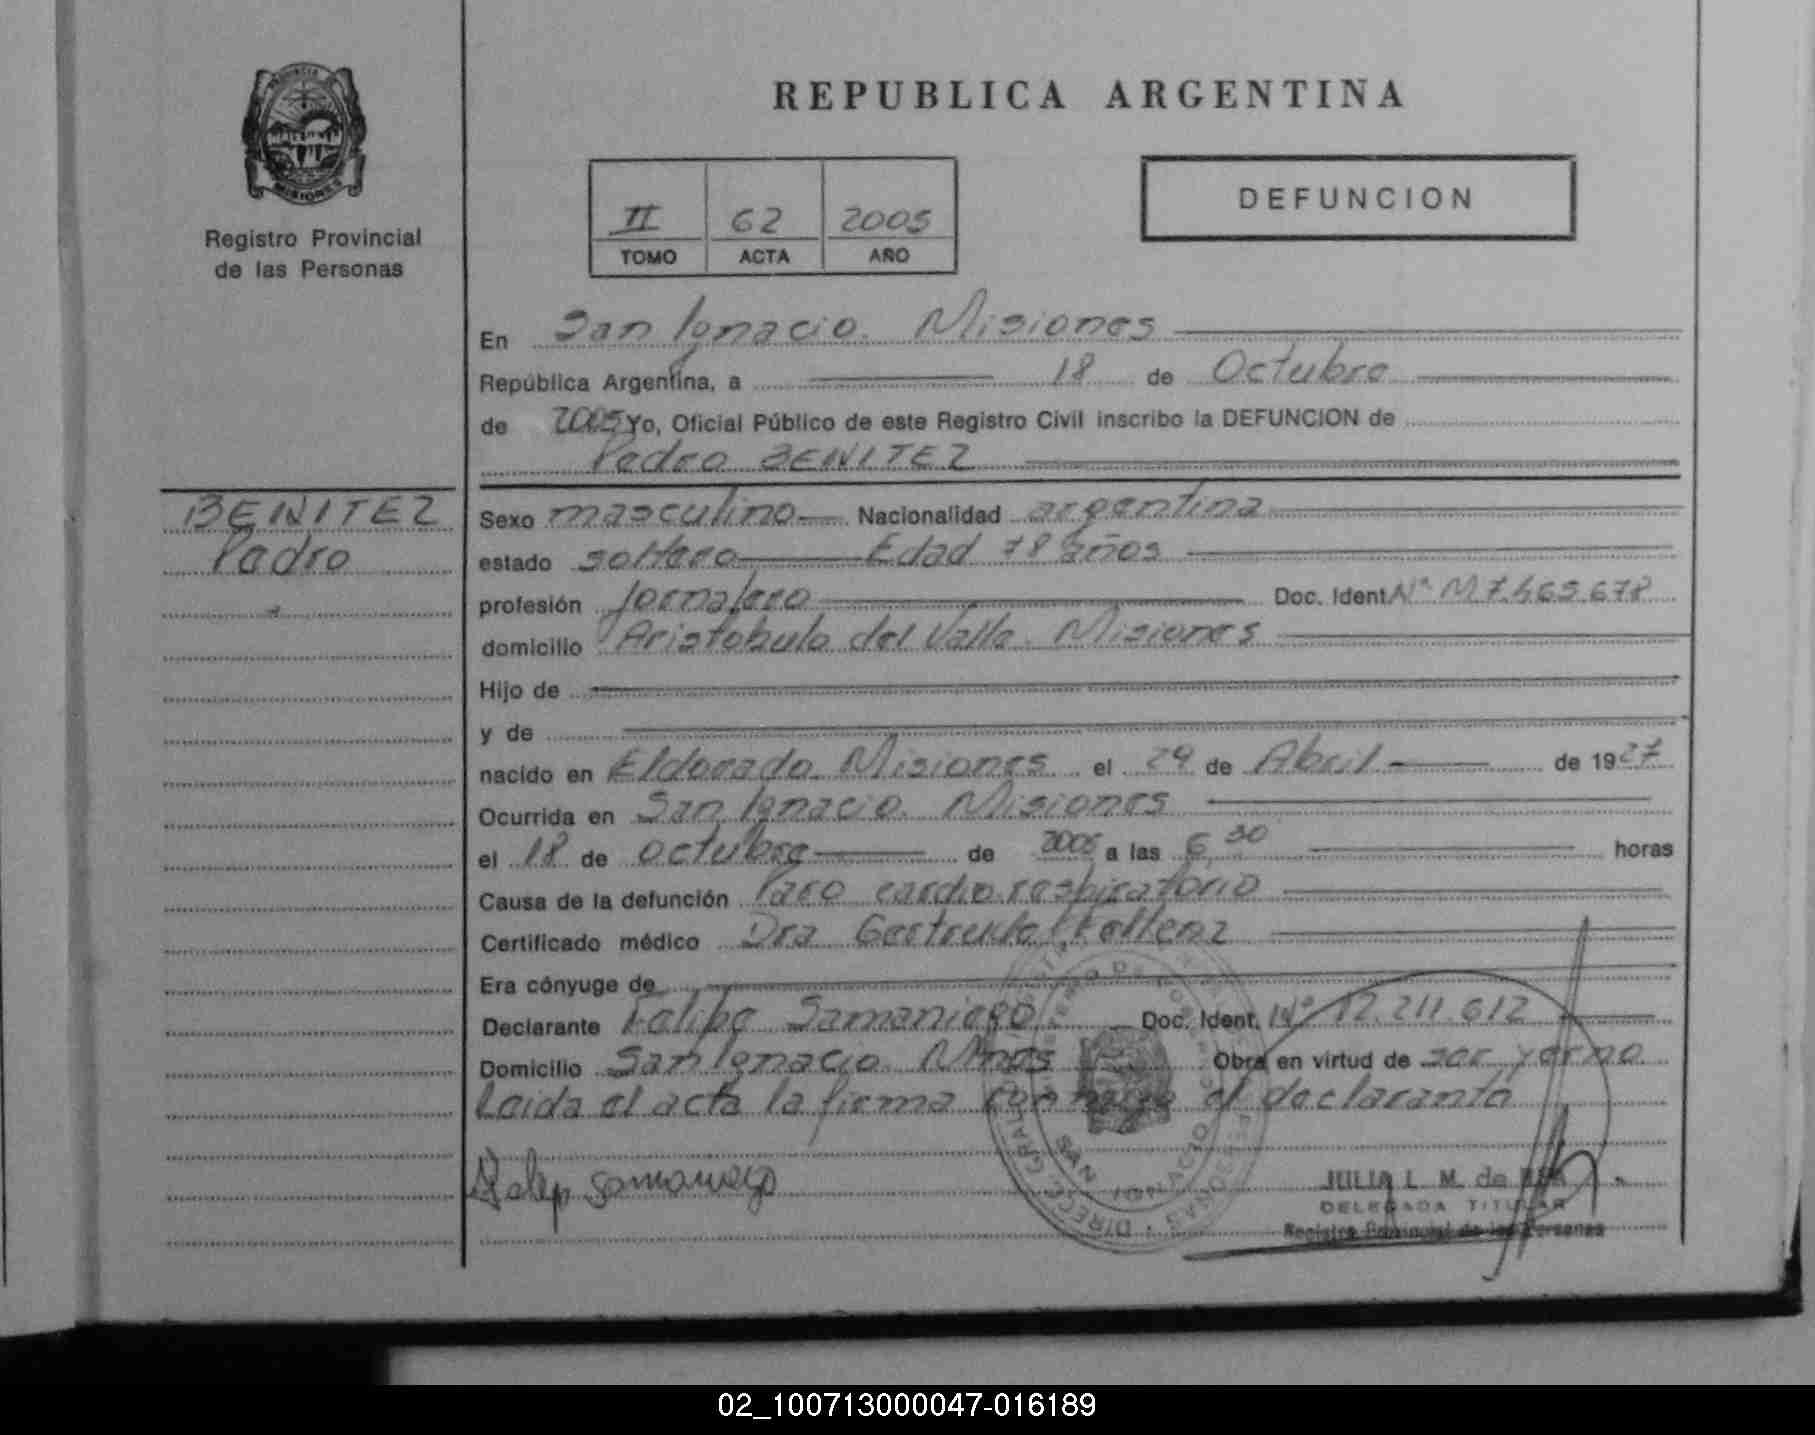 REPUBLICA ARGENTINA
PROVINCIA DE
MISIONES
Registro Provincial
de las Personas
DEFUNCION
II 62 2005
TOMO ACTA AÑO
En San Ignacio. Misiones
República Argentina, a 18 de Octubre
de 2005 Yo, Oficial Público de este Registro Civil inscribo la DEFUNCION de
Pedro BENITEZ
BENITEZ
Pedro
Sexo masculino Nacionalidad argentina
estado soltero Edad 78 años
profesión Jornalero Doc. Ident Nº M 7.469.678
domicilio Aristobulo del Valle. Misiones
Hijo de
y de
nacido en Eldorado. Misiones el 29 de Abril de 1927
Ocurrida en San Ignacio. Misiones
el 18 de octubre de 2005 a las 6,30 horas
Causa de la defunción Paro cardio respiratorio
Certificado médico Dra Gertrude
Era cónyuge de
Declarante Felipe Samaniego Doc. Ident. Nº 12.211.612
Domicilio San Ignacio. Mnes Obra en virtud de ser yerno
Leida el acta la firma con migo el declarante
Felip Samaniego
JULIA L. M. de
DELEGADA TITULAR
Registro Provincial de las Personas
02_100713000047-016189